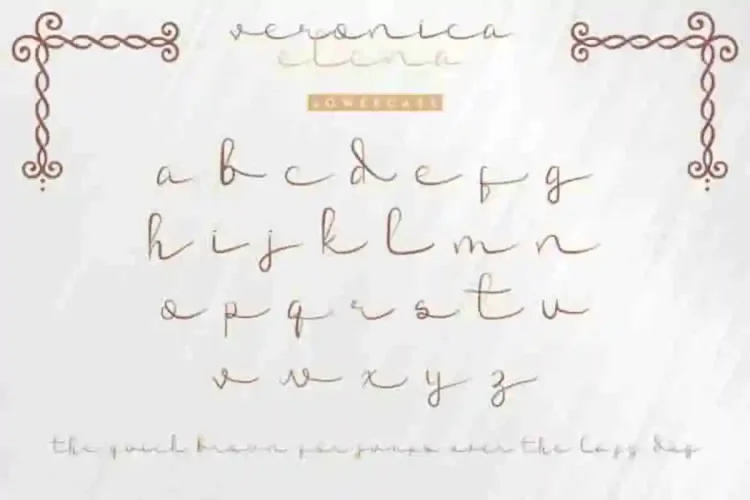 veronica
elena
LOWERCASE
a b c d e f g
h i j k l m n
o p q r s t u
v w x y z
the quick brown fox jumps over the lazy dog